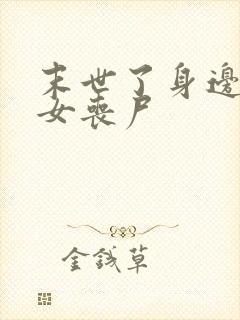 末世了身邊
女喪尸
金錢草